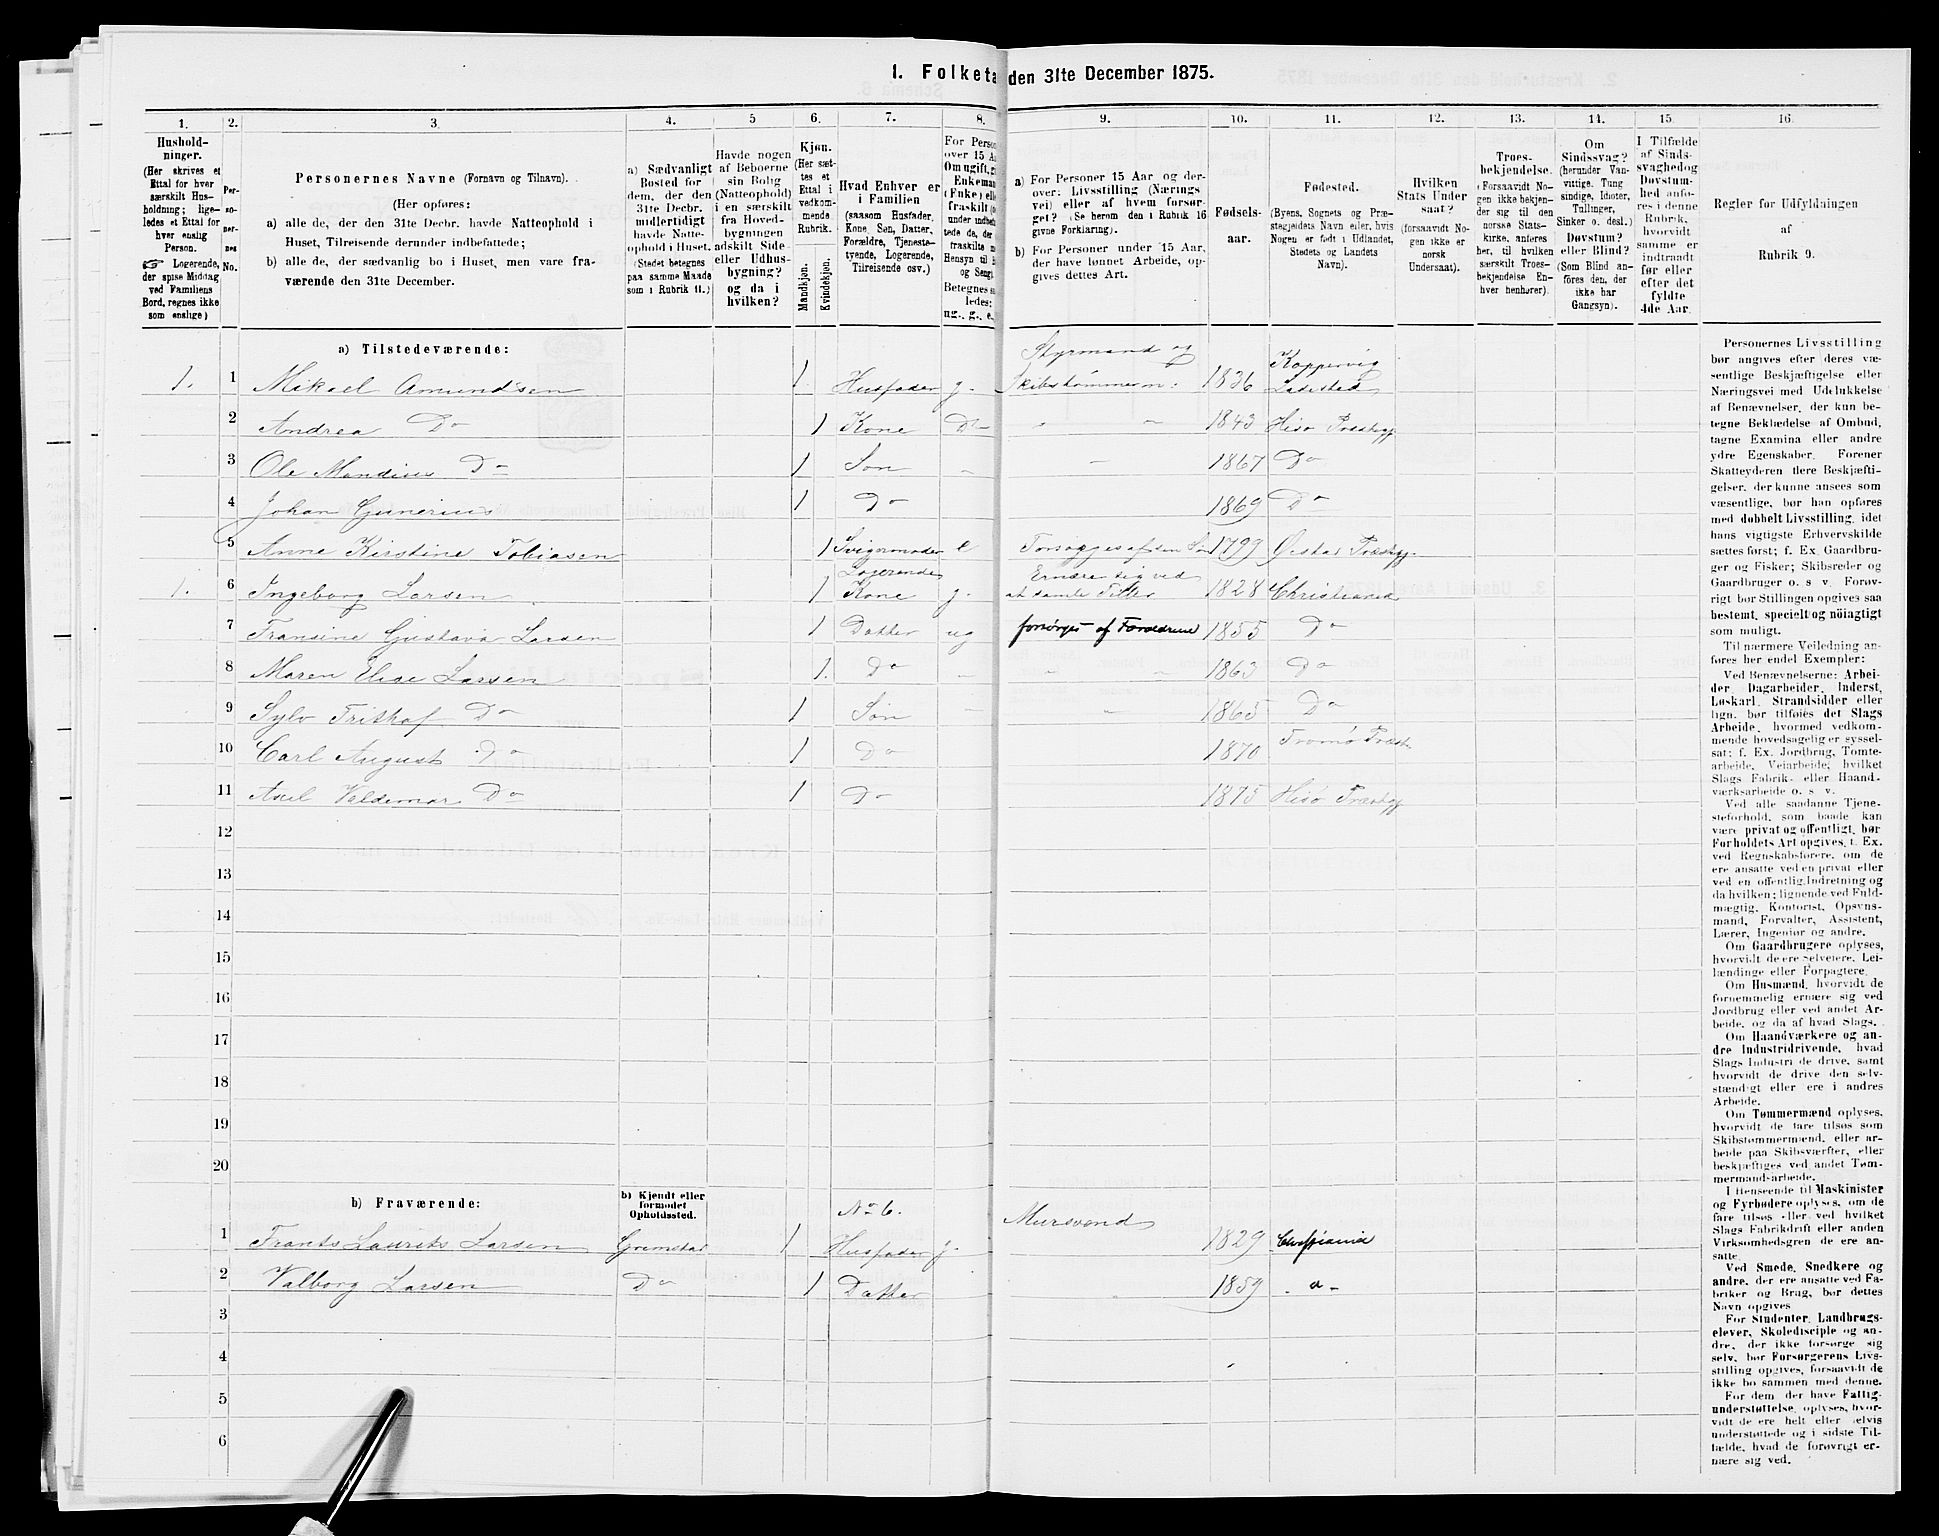 1. Folketa den 31te December 1875.
1. 2. 3. 4. 5 6. 7. 8. 9. 10. 11. 12. 13. 14. 15. 16.
Hushold-
ninger.
(Her skrives et
Ettal for hver
særskilt Hus-
holdning; lige-
ledes et Ettal for
hver enslig
Person.
☞ Logerende,
der spise Middag
ved Familiens
Bord, regnes ikke
som enslige)
Per-
so-
ner-
nes
No.
Personernes Navne (Fornavn og Tilnavn).
(Her opføres:
a) alle de, der den 31te Decbr. havde Natteophold i
Huset, Tilreisende derunder indbefattede;
b) alle de, der sædvanlig bo i Huset, men vare fra-
værende den 31te December.
a) Sædvanligt
Bosted for
dem, der den
31te Decbr.
midlertidigt
havde Natte-
ophold i Huset.
(Stedet betegnes
paa samme Maade
som i Rubrik 11.)
Havde nogen
af Beboerne
sin Bolig
(Natteophold)
i en særskilt
fra Hoved-
bygningen
adskilt Side-
eller Udhus-
bygning?
og da i
hvilken?
Kjøn.
(Her sæt-
tes et
Ettal i
vedkom-
mende
Rubrik.
Mandkjøn.
Kvindekjøn.
Hvad Enhver er
i Familien
(saasom Husfader,
Kone, Søn, Datter,
Forældre, Tjeneste-
tyende, Logerende,
Tilreisende osv.)
For Perso
over 15 Aa
Om ugift, g
Enkema
(Enke) elle
fraskilt (o
under indbe
tede de, der
fraskilte
Hensyn til B
og Seng)
Betegnes s
ledes:
ug., g., e.,
a) For Personer 15 Aar og der-
over: Livsstilling (Nærings
vei) eller af hvem forsør-
get? (Se herom den i Rubrik 16
givne Forklaring).
b) For Personer under 15 Aar,
der have lønnet Arbeide, op-
gives dettes Art.
Fødsels-
aar.
Fødested.
(Byens, Sognets og Præ-
stegjeldets Navn eller, hvis
Nogen er født i Udlandet,
Stedets og Landets
Navn).
Hvilken
Stats Under
saat?
(forsaavidt No-
gen ikke er
norsk
Undersaat).
Troes-
bekjendelse.
(Forsaavidt No-
gen ikke bekjen-
der sig til den
norske Stats-
kirke, anføres
her, til hvilken
særskilt Troes-
bekjendelse En-
hver henhører).
Om
Sindssvag?
(herunder Van-
vittige, Tung
sindige, Idioter,
Tullinger,
Sinker o. desl.)
Døvstum?
eller Blind?
(Som Blind an-
føres den, der
ikke har
Gangsyn).
I Tilfælde
af Sinds-
svaghed og
Døvstum-
hed anfø-
res i denne
Rubrik,
hvorvidt
samme er
indtraadt
før eller
efter det
fyldte
4de Aar.
Regler for Udfyldningen
af
Rubrik 9.
a) Tilstedeværende:
1. 1 Mikael Amundsen 1 Husfader g. Styrmand og Skibstømmerm: 1836 Koppervig Ladested
2 Andrea Do 1 Kone Do 1843 Hisø Præstegj
3 Ole Mandius Do 1 Søn 1867 Do
4 Johan Gunerius 1 Do 1869 Do
5 Anne Kirstine Tobiasen 1 Svigermoder e Forsørges af den Søn 1799 Øiestad Præstegj.
1. 6 Ingeborg Larsen 1 Logerende Kone g. Ernære sig ved at samle Filler 1828 Christiania
7 Fransine Gustava Larsen 1 Datter ug forsørges af Forældrene 1855 Do
8 Maren Elise Larsen 1 Do 1863 Do
9 Sylv Frithof Do 1 Søn 1865 Do
10 Carl August Do 1 Do 1870 Tromø Præst.
11 Axel Valdemar Do 1 Do 1875 Hisø Præstegj
12
13
14
15
16
17
18
19
20
b) Fraværende:
b) Kjendt eller
formodet
Opholdssted.
No 6.
1 Frants Laurits Larsen Grimstad 1 Husfader g. Mursvend 1829 Christiania
2 Valborg Larsen Do 1 Datter 1859 - a -
3
4
5
6
Personernes Livsstilling
bør angives efter deres væ-
sentlige Beskjæftigelse eller
Næringsvei med Udelukkelse
af Benævnelser, der kun be-
tegne Beklædelse af Ombud,
tagne Examina eller andre
ydre Egenskaber. Forener
Skatteyderen flere Beskjæfti-
gelser, der kunne ansees som
væsentlige, bør han opføres
med dobbelt Livsstilling, idet
hans vigtigste Erhvervskilde
sættes først; f. Ex. Gaardbru-
ger og Fisker; Skibsreder og
Gaardbruger o. s. v. Forøv-
rigt bør Stillingen opgives saa
bestemt, specielt og nöiagtigt
som muligt.
Til nærmere Veiledning an-
føres her endel Exempler:
Ved Benævnelserne: Arbei-
der, Dagarbeider, Inderst,
Løskarl, Strandsidder eller
lign. bør tilføies det Slags
Arbeide, hvormed vedkom-
mende hovedsagelig er syssel-
sat; f. Ex. Jordbrug, Tomte-
arbeide, Veiarbeide, hvilket
Slags Fabrik- eller Haand-
værksarbeide o. s. v.
Ved alle saadanne Tjene-
steforhold, som baade kan
være privat og offentligt, bør
Forholdets Art opgives, t. Ex.
ved Regnskabsførere, om de
ere ansatte ved en privat eller
ved en offentlig Indretning og
da hvilken; lignende ved Fuld-
mægtig, Kontorist, Opsyns-
mand, Forvalter, Assistent,
Lærer, Ingeniør og andre.
Om Gaardbrugere oplyses,
hvorvidt de ere Selveiere, Lei-
lændinge eller Forpagtere.
Om Husmænd, hvorvidt de
fornemmelig ernære sig ved
Jordbrug eller ved andet Ar-
beide, og da af hvad Slags.
Om Haandværkere og an-
dre Industridrivende, hvad
Slags Industri de drive, samt
hvorvidt de drive den selv-
stændigt eller ere i andres
Arbeide.
Om Tømmermænd oplyses,
hvorvidt de fare tilsøs som
Skibstømmermænd, eller ar-
beide paa Skibsværfter, eller
beskjæftiges ved andet Tøm-
mermandsarbeide.
I Henseende til Maskinister
og Fyrbødere oplyses, om de
fare tilsøs eller ved hvilket
Slags Fabrikdrift eller anden
Virksomhedsgren de ere an-
satte.
Ved Smede, Snedkere og
andre, der ere ansatte ved Fa-
briker og Brug, bør dettes
Navn opgives
For Studenter, Landbrugs-
elever, Skoledisciple og an-
dre, der ikke forsørge sig
selv, bør Forsørgerens Livs-
stilling opgives, forsaavidt de
ikke bo sammen med denne.
For dem, der have Fattig-
understøttelse, oplyses, hvor-
vidt de ere helt eller delvis
understøttede og i sidste Til-
fælde, hvad de forøvrigt er-
nære sig ved.